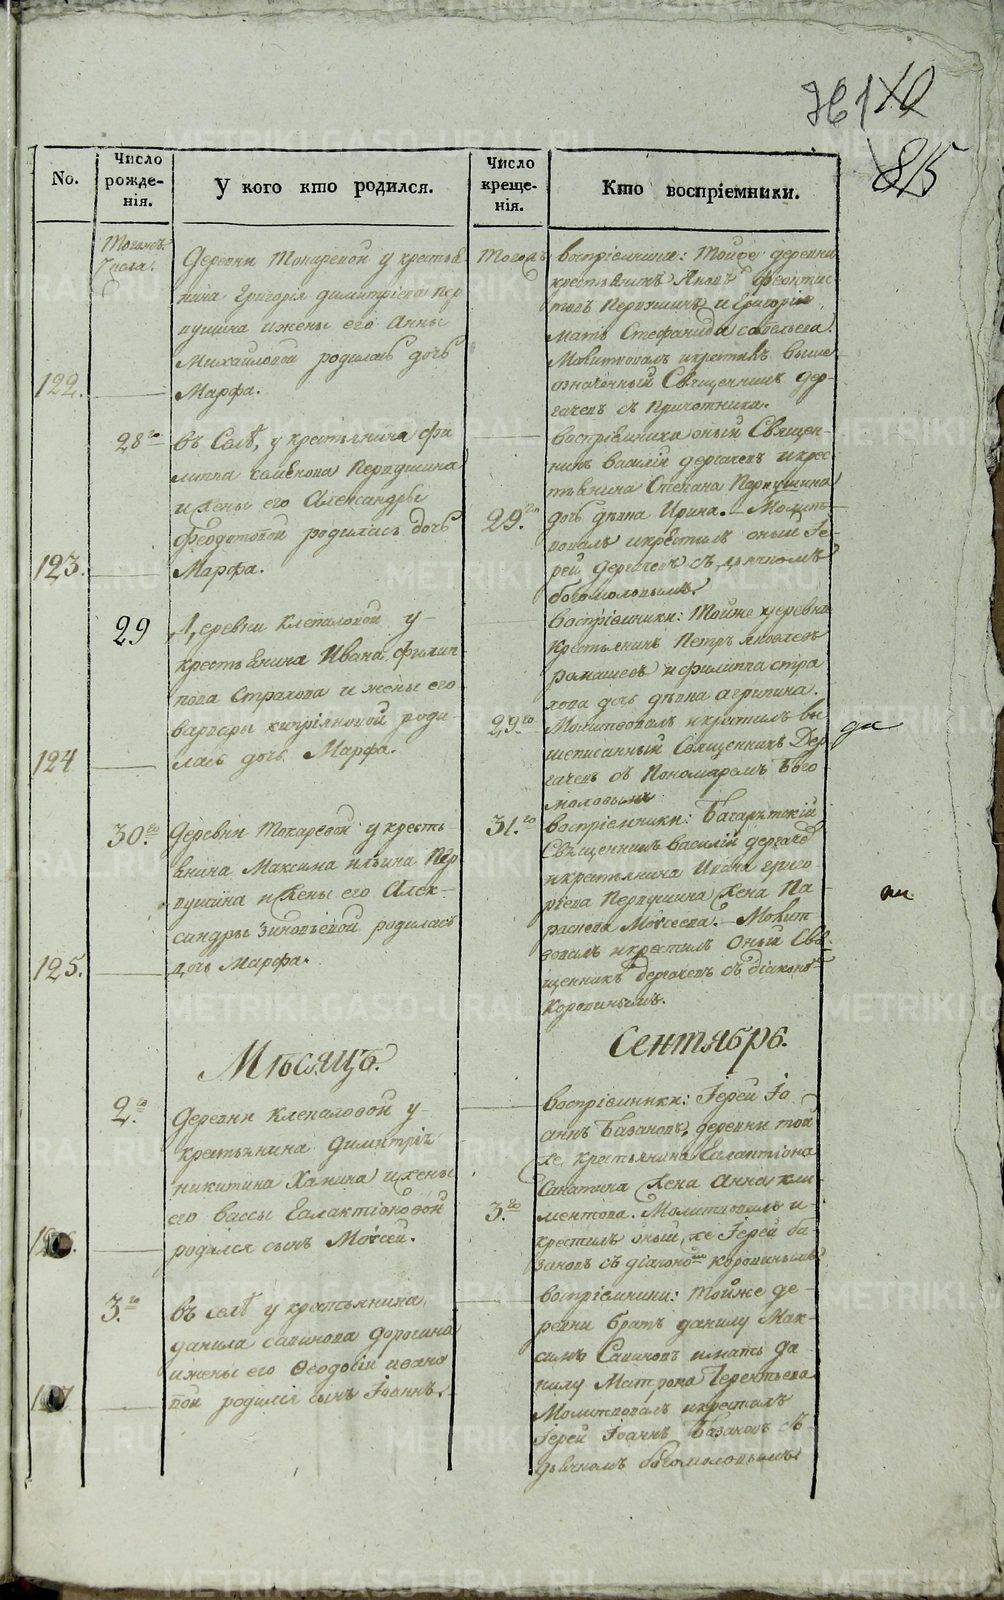 85
No.
Число рожде-нія.
У кого кто родился.
Число креще-нія.
Кто воспріемники.
122.
Тогожъ
Числа.
Деревни Токаревой у крестья
нина Григорія Димитріева Пер
пушина и жены его Анны
Михайловой родилась дочь
Марфа.
воспріемники: Тойже деревни
крестьянинъ
и Григорія
мать Стефанида Савельева.
Молитвовалъ и крестилъ выше
означенный Священникъ Дер-
гачевъ съ Причотники.
123.
28го
Въ Селѣ, у крестьянина Фи
липпа Перпушина
и жены его Александры
Федотовой родилась дочь
Марфа.
29.го
воспріемники оный Священ-
никъ Василій Дергачевъ и крес
тьянина Степана Перпушина
дочь дѣвка Ирина. Молит-
вовалъ и крестилъ оный Іе-
рей Дергачевъ съ дьячкомъ
Богомоловымъ.
124
29
Деревни Клепаловой у
крестьянина Ивана Филип
пова Страхова и жены его
Варвары Кипріяновой роди-
лась дочь Марфа.
29.го
воспріемники: Тойже деревни
Крестьянинъ Петръ Яковлевъ
Ромашевъ и Филиппа Стра
хова дочь дѣвка Агрипина.
Молитвовалъ и крестилъ вы
шеписанный Священникъ Дер
гачевъ съ Пономаремъ Бого
моловымъ
да
125.
30.го
Деревни Токаревой у кресть
янина Максима Ильина Пер
пушина и жены его Алек-
сандры Зиновьевой родилась
дочь Марфа.
31.го
воспріемники: Багаряткій
Священникъ Василій Дергачевъ
и крестьянина Ивана Григо
рьева Перпушина жена Па-
расковья Моисеева. Молит
вовалъ и крестилъ Оный Свя-
щенникъ Дергачевъ съ діакономъ
Коровинымъ.
Мѣсяцъ.
Сентябрь.
2.го
Деревни Клепаловой у
крестьянина Димитрія
Никитина Ханина и жены
его Вассы Галактіоновой
родился сынъ Моисей.
3.го
воспріемники: Іерей Іо
аннъ Базановъ, деревни той
же крестьянина Галактіона
жена Анна Кли-
ментова. Молитвовалъ и
крестилъ оный же Іерей Ба-
зановъ съ діакономъ Коровинымъ
3.го
Въ селѣ у крестьянина
Данила Савинова Дорогина
и жены его Ѳеодосіи Ивано
вой родился сынъ Іоаннъ.
воспріемники: Тойже де-
ревни братъ Данилу Мак-
симъ Савиновъ и мать Да-
нилу Матрона Терентьева
Молитвовалъ и крестилъ
Іерей Іоаннъ Базановъ съ
дьячкомъ Богомоловымъ
METRIKI.GASO-URAL.RU